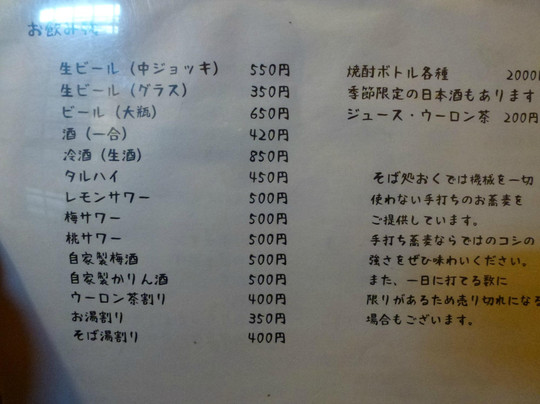 お飲み物
生ビール（中ジョッキ） 550円
生ビール（グラス） 350円
ビール（大瓶） 650円
酒（一合） 420円
冷酒（生酒） 850円
タルハイ 450円
レモンサワー 500円
梅サワー 500円
桃サワー 500円
自家製梅酒 500円
自家製かりん酒 500円
ウーロン茶割り 400円
お湯割り 350円
そば湯割り 400円
焼酎ボトル各種 2000円
季節限定の日本酒もあります
ジュース・ウーロン茶 200円
そば処おくでは機械を一切
使わない手打ちのお蕎麦を
ご提供しています。
手打ち蕎麦ならではのコシの
強さをぜひ味わいください。
また、一日に打てる数に
限りがあるため売り切れになる
場合もございます。